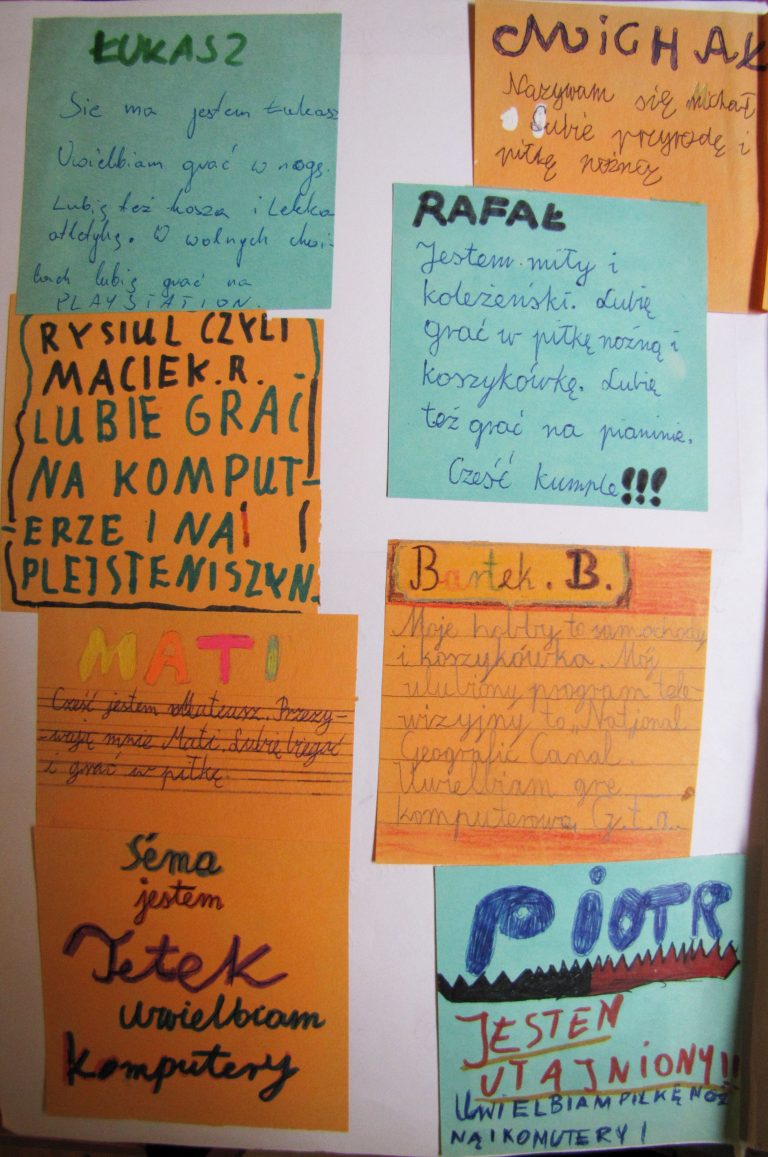 ŁUKASZ
Sie ma jestem Łukasz
Uwielbiam grać w nogę.
Lubię też kosza i Lekka
atletykę. W wolnych chwi-
lach lubię grać na
PLAYSTATION.
MICHAŁ
Nazywam się Michał
Lubie przyrodę i
piłkę nożną
RAFAŁ
Jestem miły i
koleżeński. Lubię
grać w piłkę nożną i
koszykówkę. Lubię
też grać na pianinie.
Cześć kumple!!!
RYSIUL CZYLI
MACIEK.R.
LUBIE GRAĆ
NA KOMPUT-
ERZE I NA
PLEJSTENISZYN.
Bartek. B.
Moje hobby to samochody
i koszykówka. Mój
ulubiony program tele-
wizyjny to „Natjonal
Geografic Canal
Uwielbiam grę
komputerową G.t.a.
MATI
Cześć jestem Mateusz. Przezy-
-wają mnie Mati. Lubię biegać
i grać w piłkę.
Séma
jestem
Tetek
uwielbiam
komputery
PIOTR
JESTEM
UTAJNIONY!!
UWIELBIAM PIŁKĘ NOŻ
NĄ I KOMUTERY!